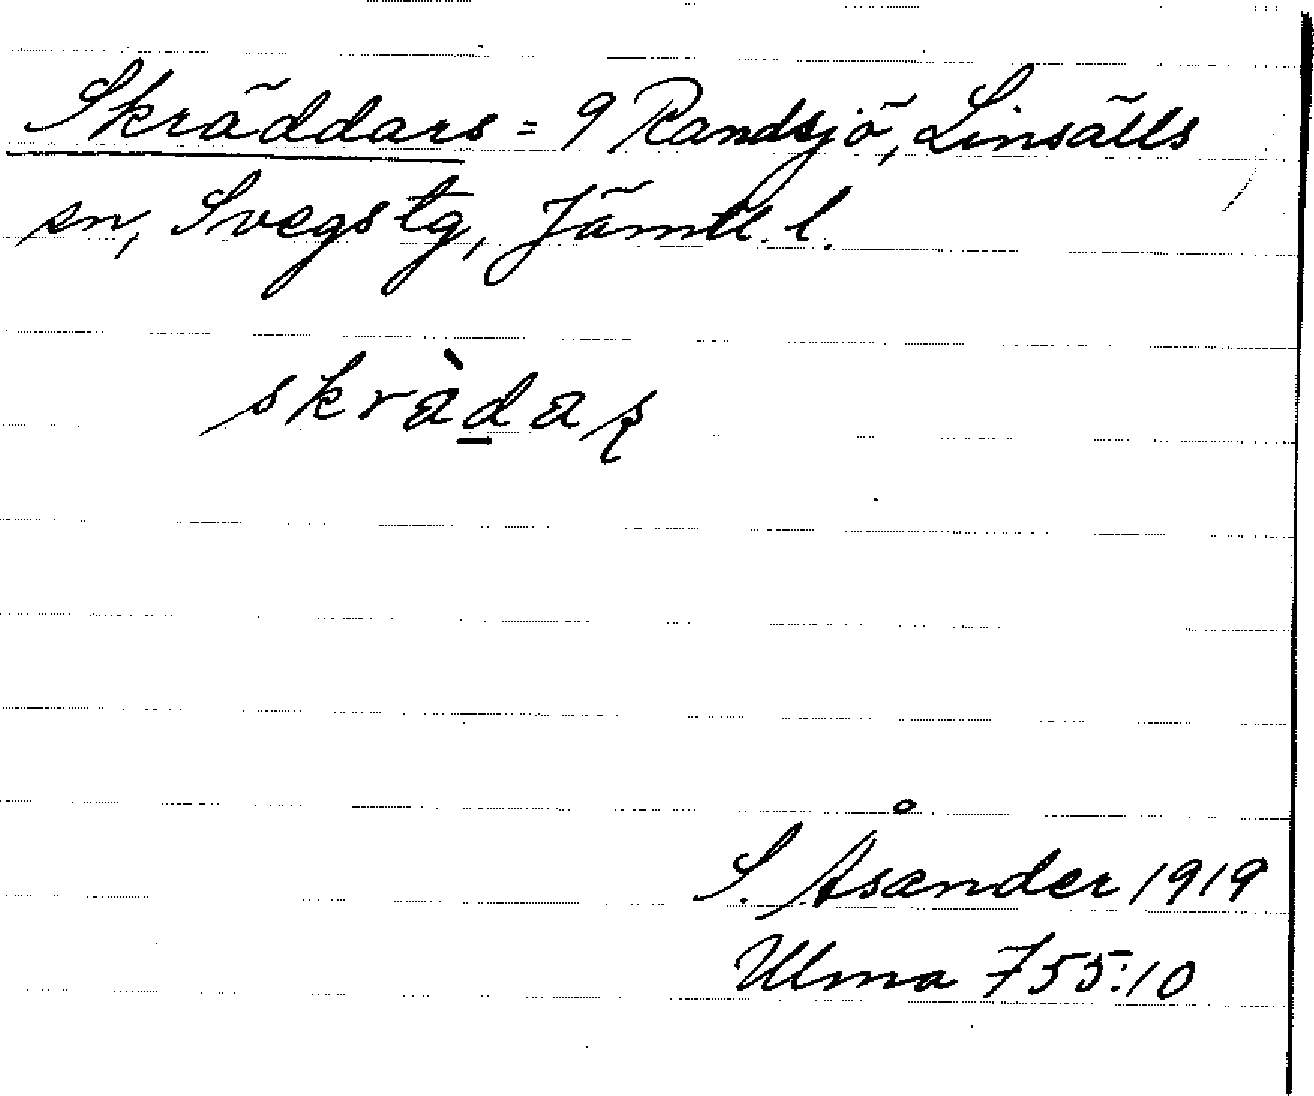 Skräddars = 9 Randsjö, Linsälls
sn, Svegs tg, Jämtl. l.
skràd̲aʂ
S. Åsander 1919
Ulma 755:10